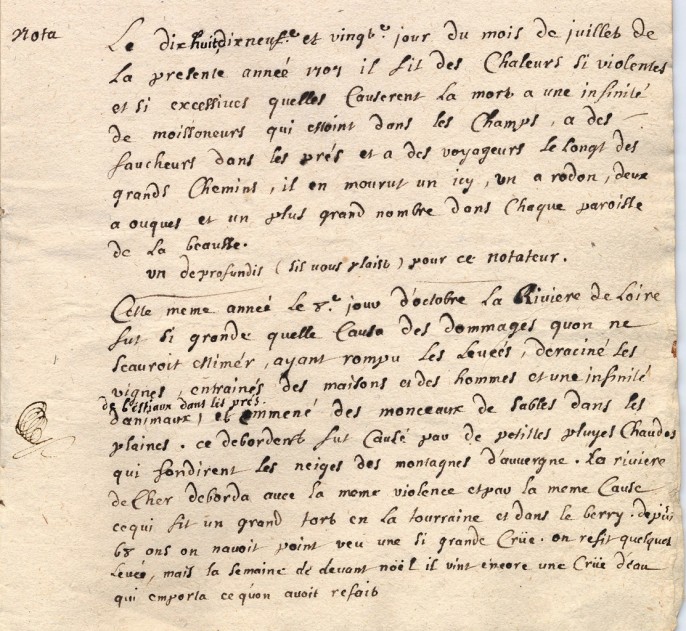 Nota
Le dix huit dixneuf.e et vingt.e jour du mois de juillet de
la presente année 1707 il fit des Chaleurs si violentes
et si excessives quelles Causerent la mort a une infinité
de moissoneurs qui estoint dans les Champs, a des
faucheurs dans les prés et a des voyageurs le longt des
grands Chemins, il en mourut un icy, un a rodon, deux
a ouques et un plus grand nombre dans Chaque paroisse
de la beausse.
un deprofundis (sis vous plaist) pour ce notateur.
Cette meme année le 8.e jour d'octobre la Riviere de Loire
fut si grande quelle Causa des dommages quon ne
scauroit estimér, ayant rompu les Leveés, deraciné les
vignes, entrainés des maisons et des hommes et une infinité
de bestiaux dans les prés.
d'animaux, et emmené des monceaux de sables dans les
plaines. ce debordemt fut Causé par de petittes pluyes Chaudes
qui fondirent les neiges des montagnes d'auvergne. La riviere
de Cher deborda avec la meme violence et par la meme Cause
ce qui fit un grand tort en la tourraine et dans le berry. depuis
68 ans on navoit point veu une si grande Crüe. on refit quelques
Leveés, mais la semaine de devant noël il vint encore une Crüe d'eau
qui emporta ce quon avoit refait